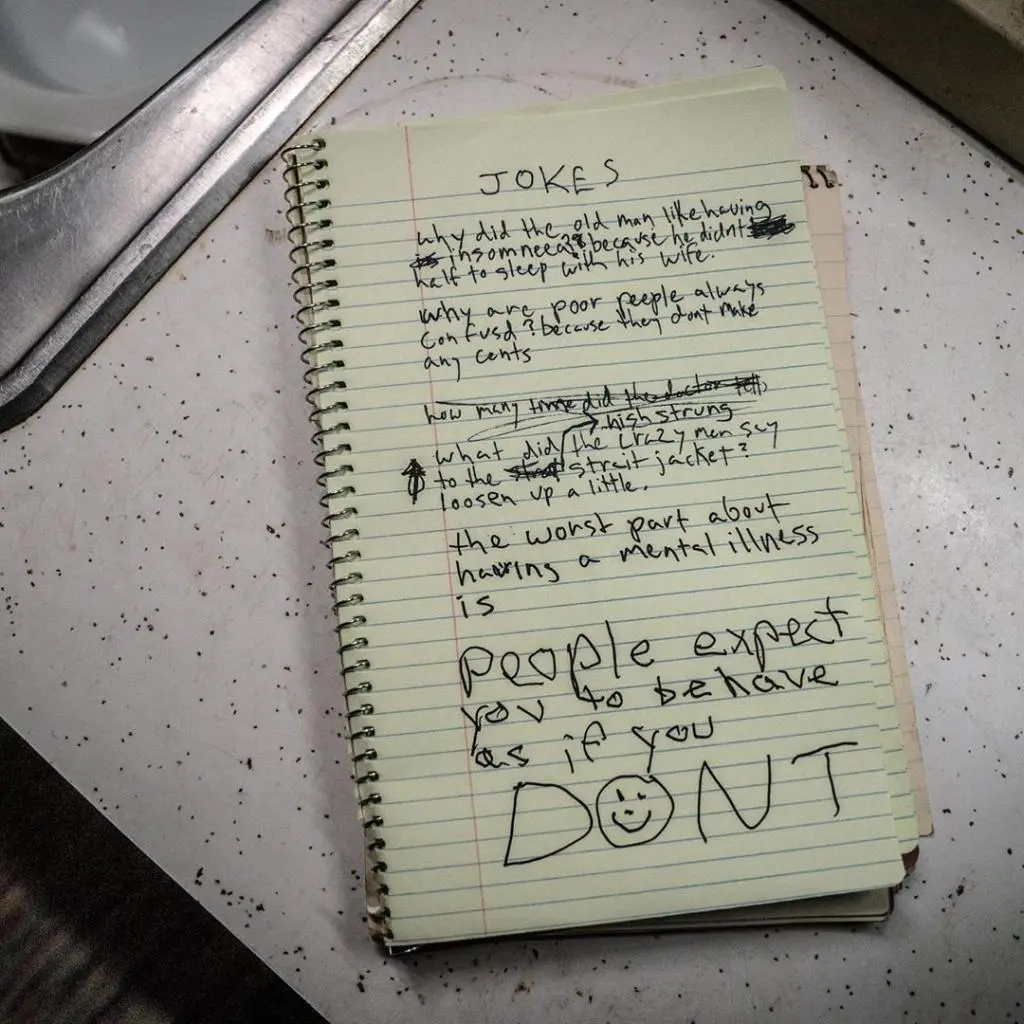 JOKES
why did the old man like having
insomneea? because he didnt
half to sleep with his wife.
why are poor peeple always
confusd? because they dont make
any cents
how many did the doctor tell
high strung
what did the crazy man say
to the strait jacket?
loosen up a little.
the worst part about
having a mental illness
is
people expect
you to behave
as if you
DONT